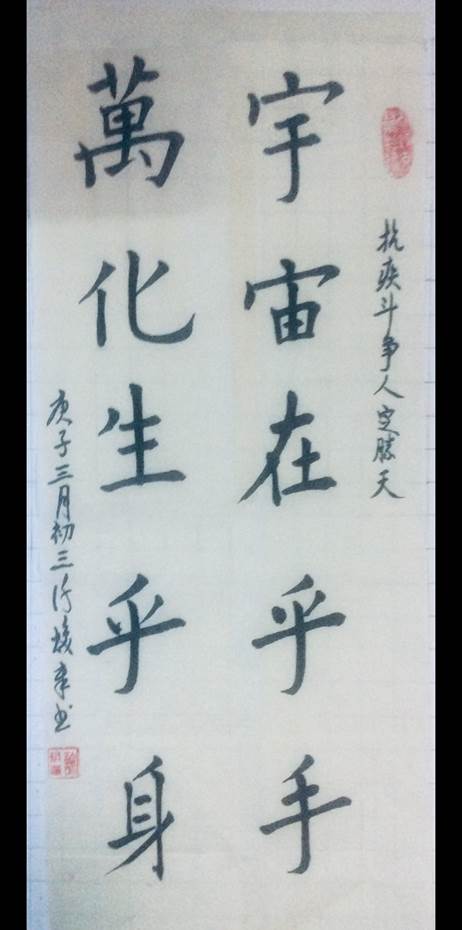 抗疾斗争人定胜天
宇宙在乎手
萬化生乎身
庚子三月初三